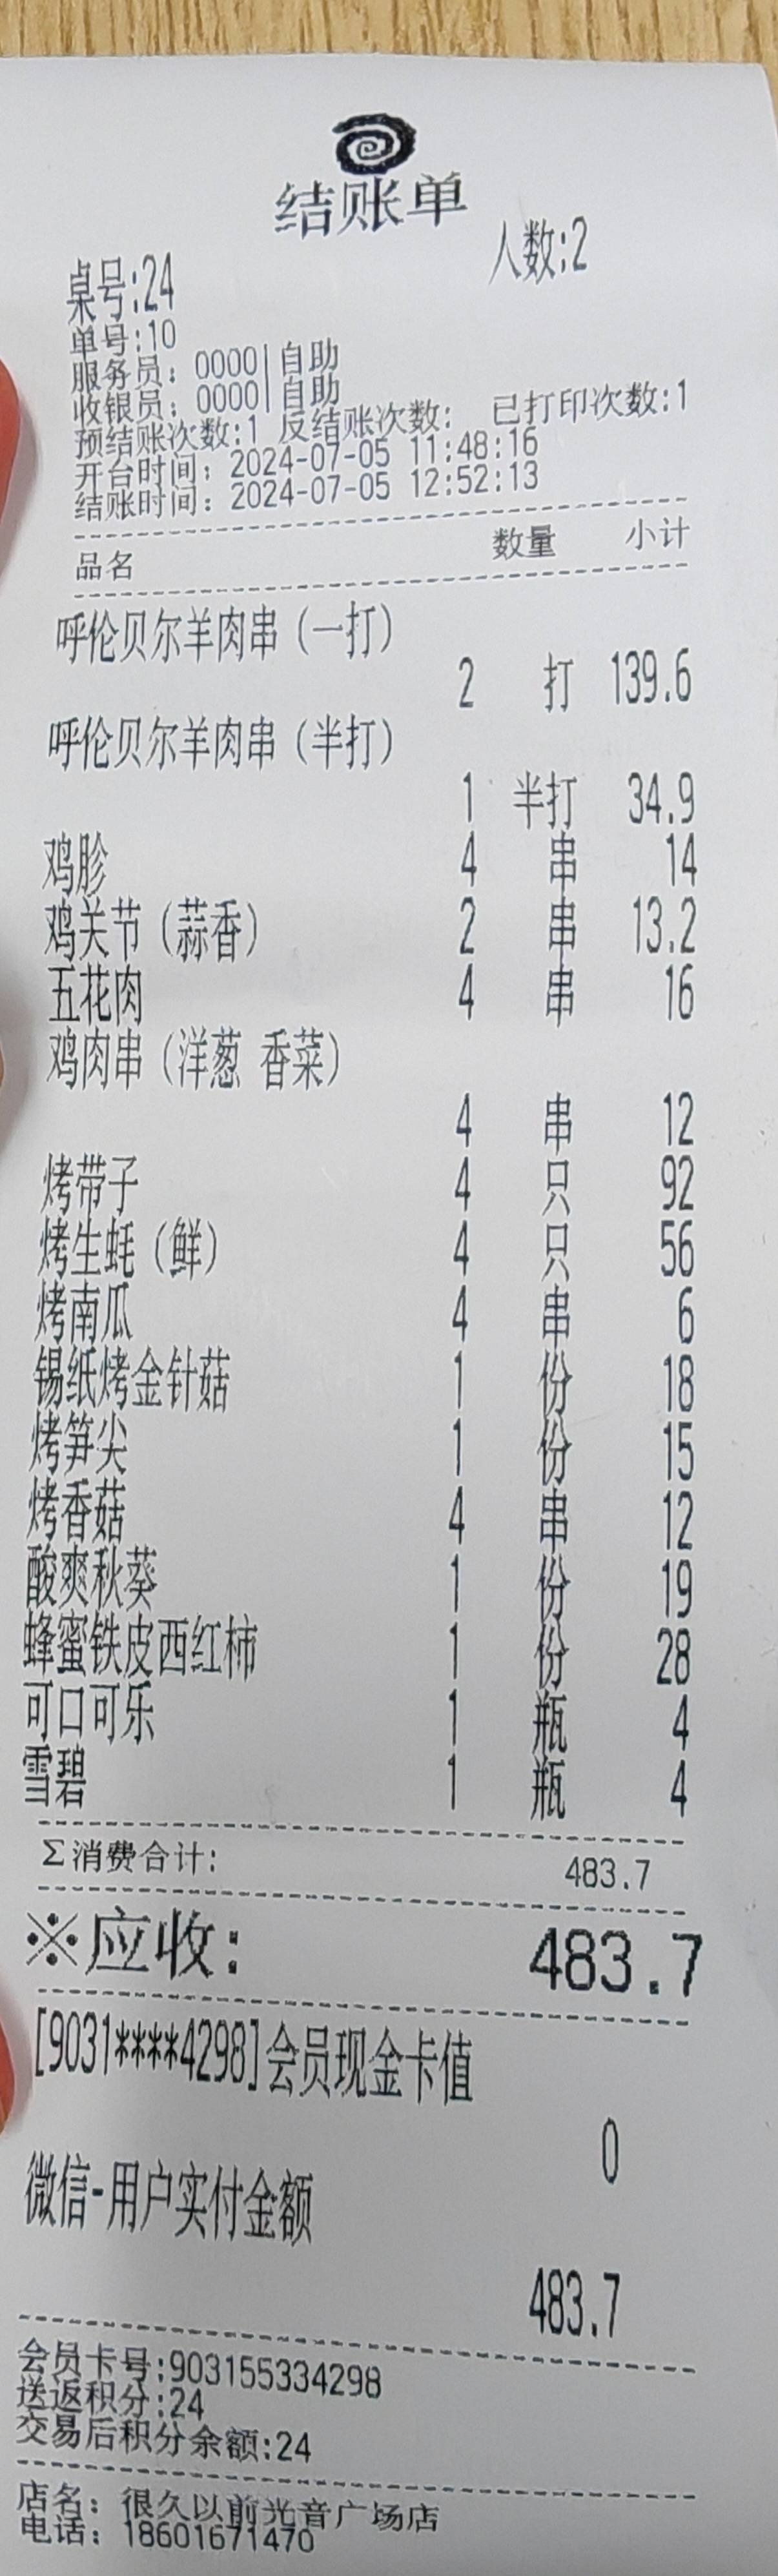 结账单
人数:2
桌号:24
单号:10
服务员: 0000|自助
收银员: 0000|自助
预结账次数:1 反结账次数: 已打印次数:1
开台时间: 2024-07-05 11:48:16
结账时间: 2024-07-05 12:52:13
品名 数量 小计
呼伦贝尔羊肉串(一打)
2 打 139.6
呼伦贝尔羊肉串(半打)
1 半打 34.9
鸡胗 4 串 14
鸡关节(蒜香) 2 串 13.2
五花肉 4 串 16
鸡肉串(洋葱 香菜)
4 串 12
烤带子 4 只 92
烤生蚝(鲜) 4 只 56
烤南瓜 4 串 6
锡纸烤金针菇 1 份 18
烤笋尖 1 份 15
烤香菇 4 串 12
酸爽秋葵 1 份 19
蜂蜜铁皮西红柿 1 份 28
可口可乐 1 瓶 4
雪碧 1 瓶 4
Σ消费合计: 483.7
※应收: 483.7
[9031****4298]会员现金卡值
0
微信-用户实付金额
483.7
会员卡号:903155334298
送返积分:24
交易后积分余额:24
店名: 很久以前光音广场店
电话: 18601671470